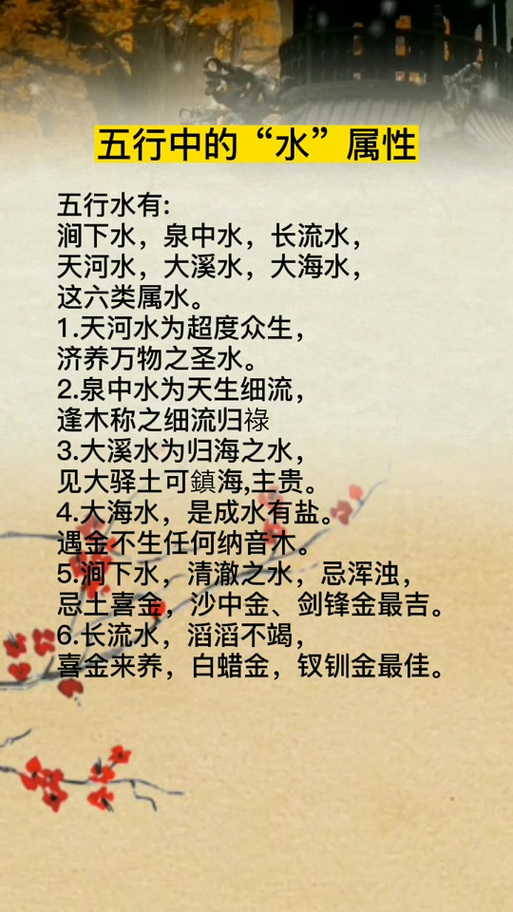 五行中的“水”属性
五行水有:
涧下水，泉中水，长流水，
天河水，大溪水，大海水，
这六类属水。
1.天河水为超度众生，
济养万物之圣水。
2.泉中水为天生细流，
逢木称之细流归禄
3.大溪水为归海之水，
见大驿土可鎮海,主贵。
4.大海水，是成水有盐。
遇金不生任何纳音木。
5.涧下水，清澈之水，忌浑浊，
忌土喜金，沙中金、剑锋金最吉。
6.长流水，滔滔不竭，
喜金来养，白蜡金，钗钏金最佳。